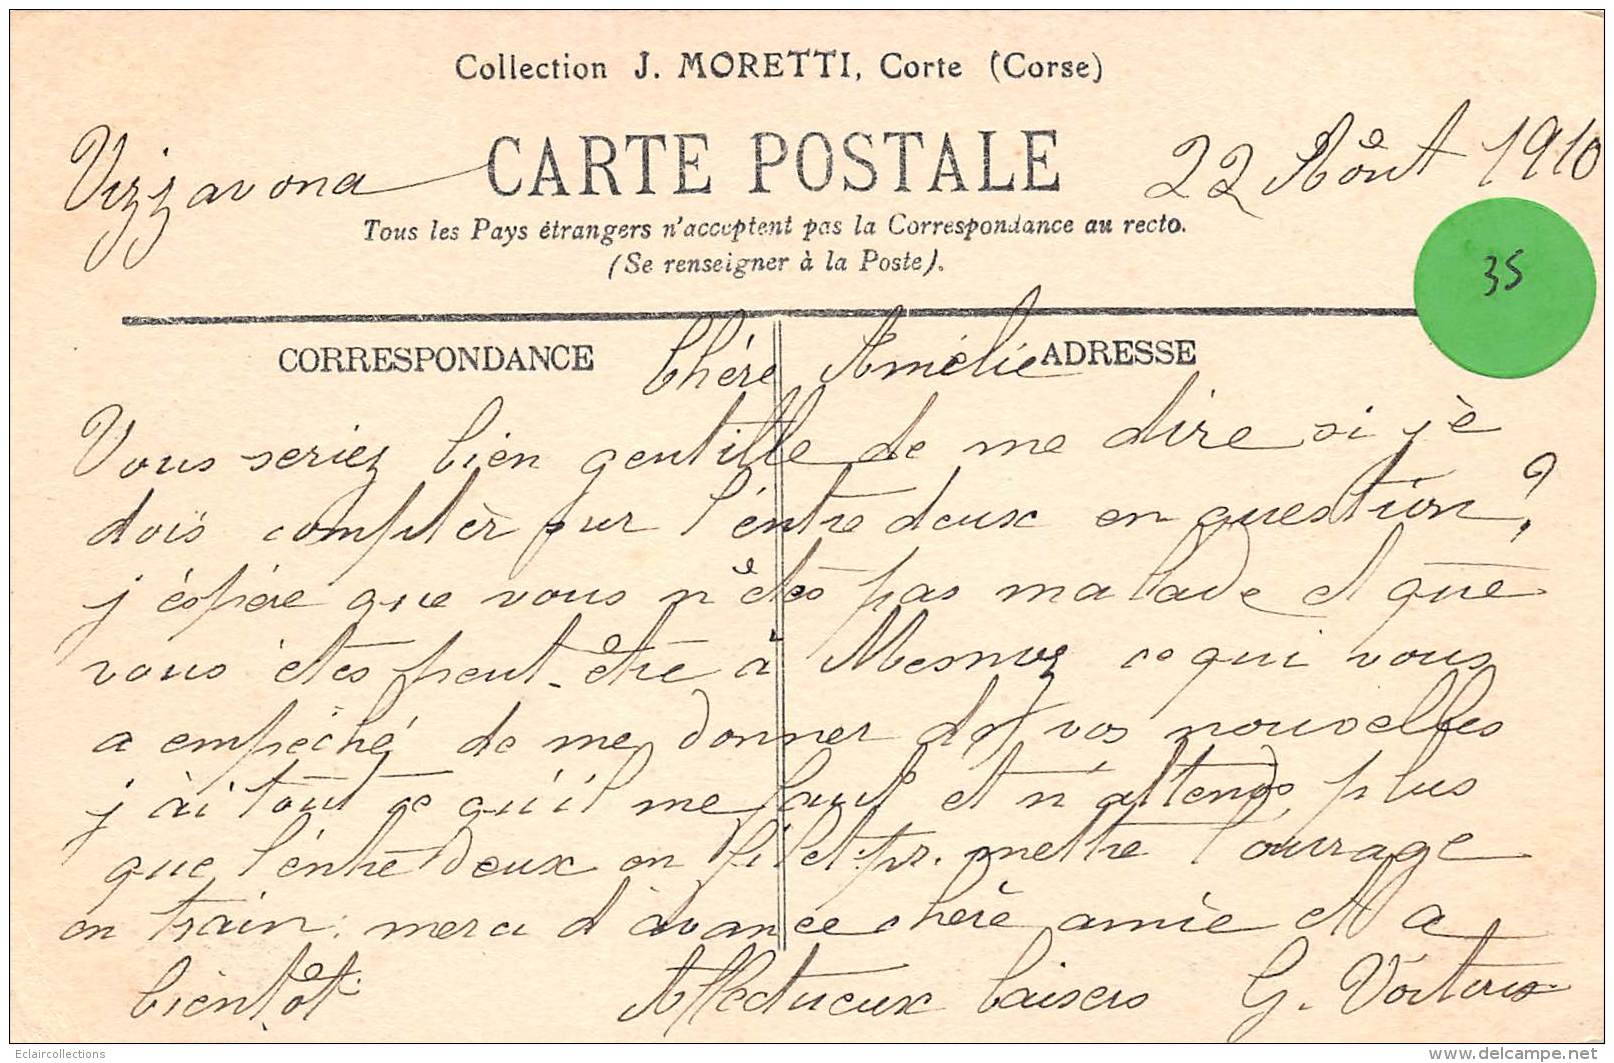 Collection J. MORETTI, Corte (Corse)
Vizzavona CARTE POSTALE 22 Août 1910
Tous les Pays étrangers n'acceptent pas la Correspondance au recto.
(Se renseigner à la Poste).
35
CORRESPONDANCE ADRESSE
Chère Amélie
Vous seriez bien gentille de me dire si je
dois compter sur l'entre deux en question?
j'éspère que vous n'êtes pas malade et que
vous êtes peut-être à ce qui vous
a empêché de me donner de vos nouvelles
j'ai tout ce qu'il me faut et n'attends plus
que l'entre deux en filet pr. mettre l'ouvrage
en train. merci d'avance chère amie et a
bientôt. Affectueux baisers G.
Eclaircollections
www.delcampe.net